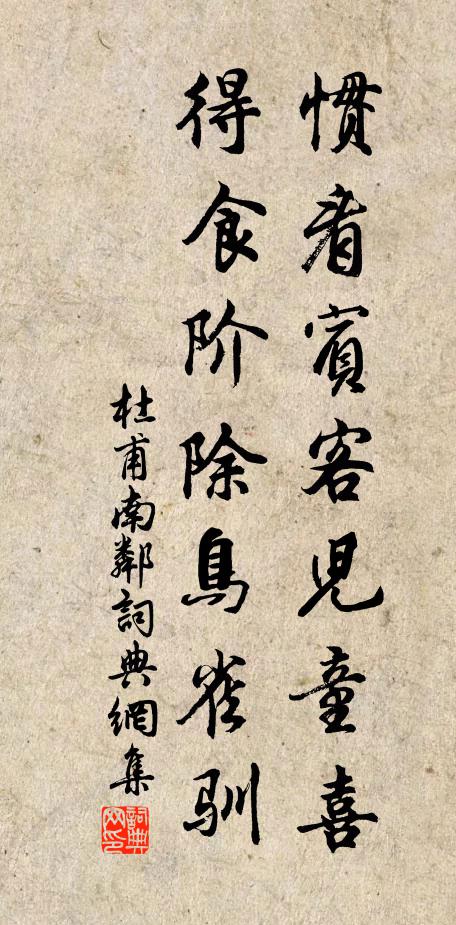 慣看賓客兒童喜
得食阶除鳥雀馴
杜甫南鄰詞典網集
詞典網印